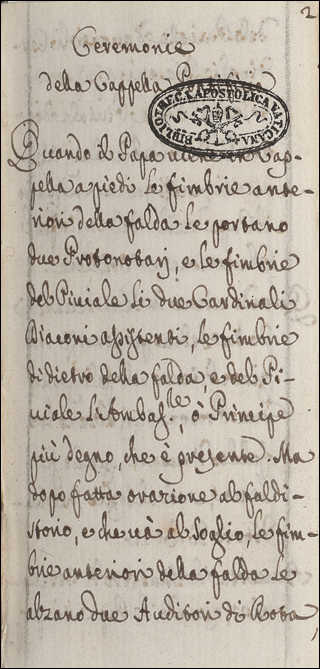 2
Ceremonie
della Cappella
BIBLIOTHECA APOSTOLICA VATICANA
Quando il Papa viene in Cap-
pella a piedi le fimbrie ante-
riori della falda le portano
due Protonotarj, e le fimbrie
del Piviale li due Cardinali
Diaconi assistenti, le fimbrie
di dietro della falda, e del Pi-
viale l'Ambas.le, ò Principe
più degno, che è presente. Ma
dopo fatta orazione al faldi-
storio, e che và al Soglio, le fim-
brie anteriori della falda le
alzano due Auditori di Rota,